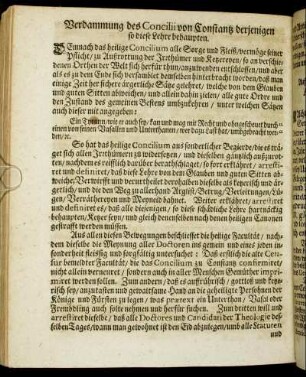 Verdammung des Concilii von Constantz derjenigen
so diese Lehre behaupten.
DEmnach das heilige Concilium alle Sorge und Fleiß/vermöge seiner
Pflicht/ zu Außrottung der Irrthümer und Ketzereyen/ so an verschie-
denen Orthen der Welt sich herfür thun/anzuwenden entschlossen/und aber
als es zu dem Ende sich versamblet demselben hinterbracht worden/daß man
einige Zeit her sichere ärgerliche Sätze gelehret habe/ welche dem Glauben und
guten Sitten abwiesen/ und allein dahin zielen/ alle gute Ordre und
den Zustand des gemeinen Bestens umbzukehren / unter welchen Sätzen
auch dieser mit angegeben:
Ein Tyrann wie er auch sey/ kan und mag mit Recht und ohngescheuet durch
einen von seinen Vasallen und Unterthanen/ wer dazu Lust hat/ umbgebracht wer-
den/ &c.
So hat das heilige Concilium aus sonderlicher Begierde/ die es trä-
get sich allen Irrthümern zu widersetzen / und dieselben gäntzlich außzurot-
ten/ nachdem es reifflich darüber berathschlaget/ so fern erkläret/ arrestti-
ret und definiret/ daß diese Lehre von dem Glauben und guten Sitten ab-
weiche/ Verwirfft und verurtheilet derenhalben dieselbe als ketzerisch und är-
gerlich und die den Weg zu allerhand Arglist/ Betrug/ Verleitungen/ Lü-
gen/ Verräthereyen und Meyneid bahnet. Weiter erkläret/ arrestiret
und definiret es/ daß alle diejenigen/ so diese schädliche Lehre hartnäckig
behaupten/ Ketzer seyn/ und gleich denenselben nach denen heiligen Canonen
gestrafft werden müssen.
Aus allen diesen Bewegungen beschliesset die heilige Facultät / nach-
dem dieselbe die Meynung aller Doctoren ins gemein und eines jeden in-
sonderheit fleissig und sorgfältig untersuchet: Daß erstlich die alte Censur
bemeldter Facultät/ die das Concilium zu Constantz confirmiret/
nicht allein verneuert / sondern auch in aller Menschen Gemüther impri-
miret werden sollen. Zum andern/ daß es auffrührisch/ gottloß und ketze-
risch sey/ anzutasten und gewaltsame Hand an die geheiligte Persohnen der
Könige und Fürsten zu legen/ was prætext ein Unterthan/ Vasal oder
Frembdling auch solte nehmen und herfür suchen. Zum dritten will und
arrestiret dieselbe/ daß alle Doctores und Candidati der Theologie des-
selben Tages/ wann man gewohnet ist den Eid abzulegen/umb alle Statuten
und